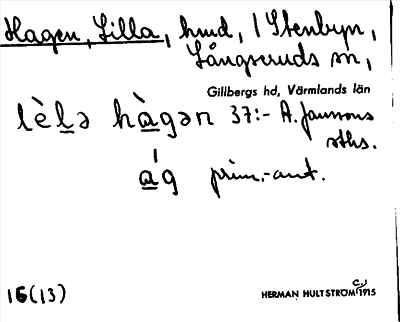 Hagen, Lilla, hmd, i Stenbyn,
Långseruds sn,
Gillbergs hd, Värmlands län
lè̀lə hàgən 37:- A. Janssons
sths.
ág prim.-ant.
16(13)
HERMAN HULTSTRÖM 1915